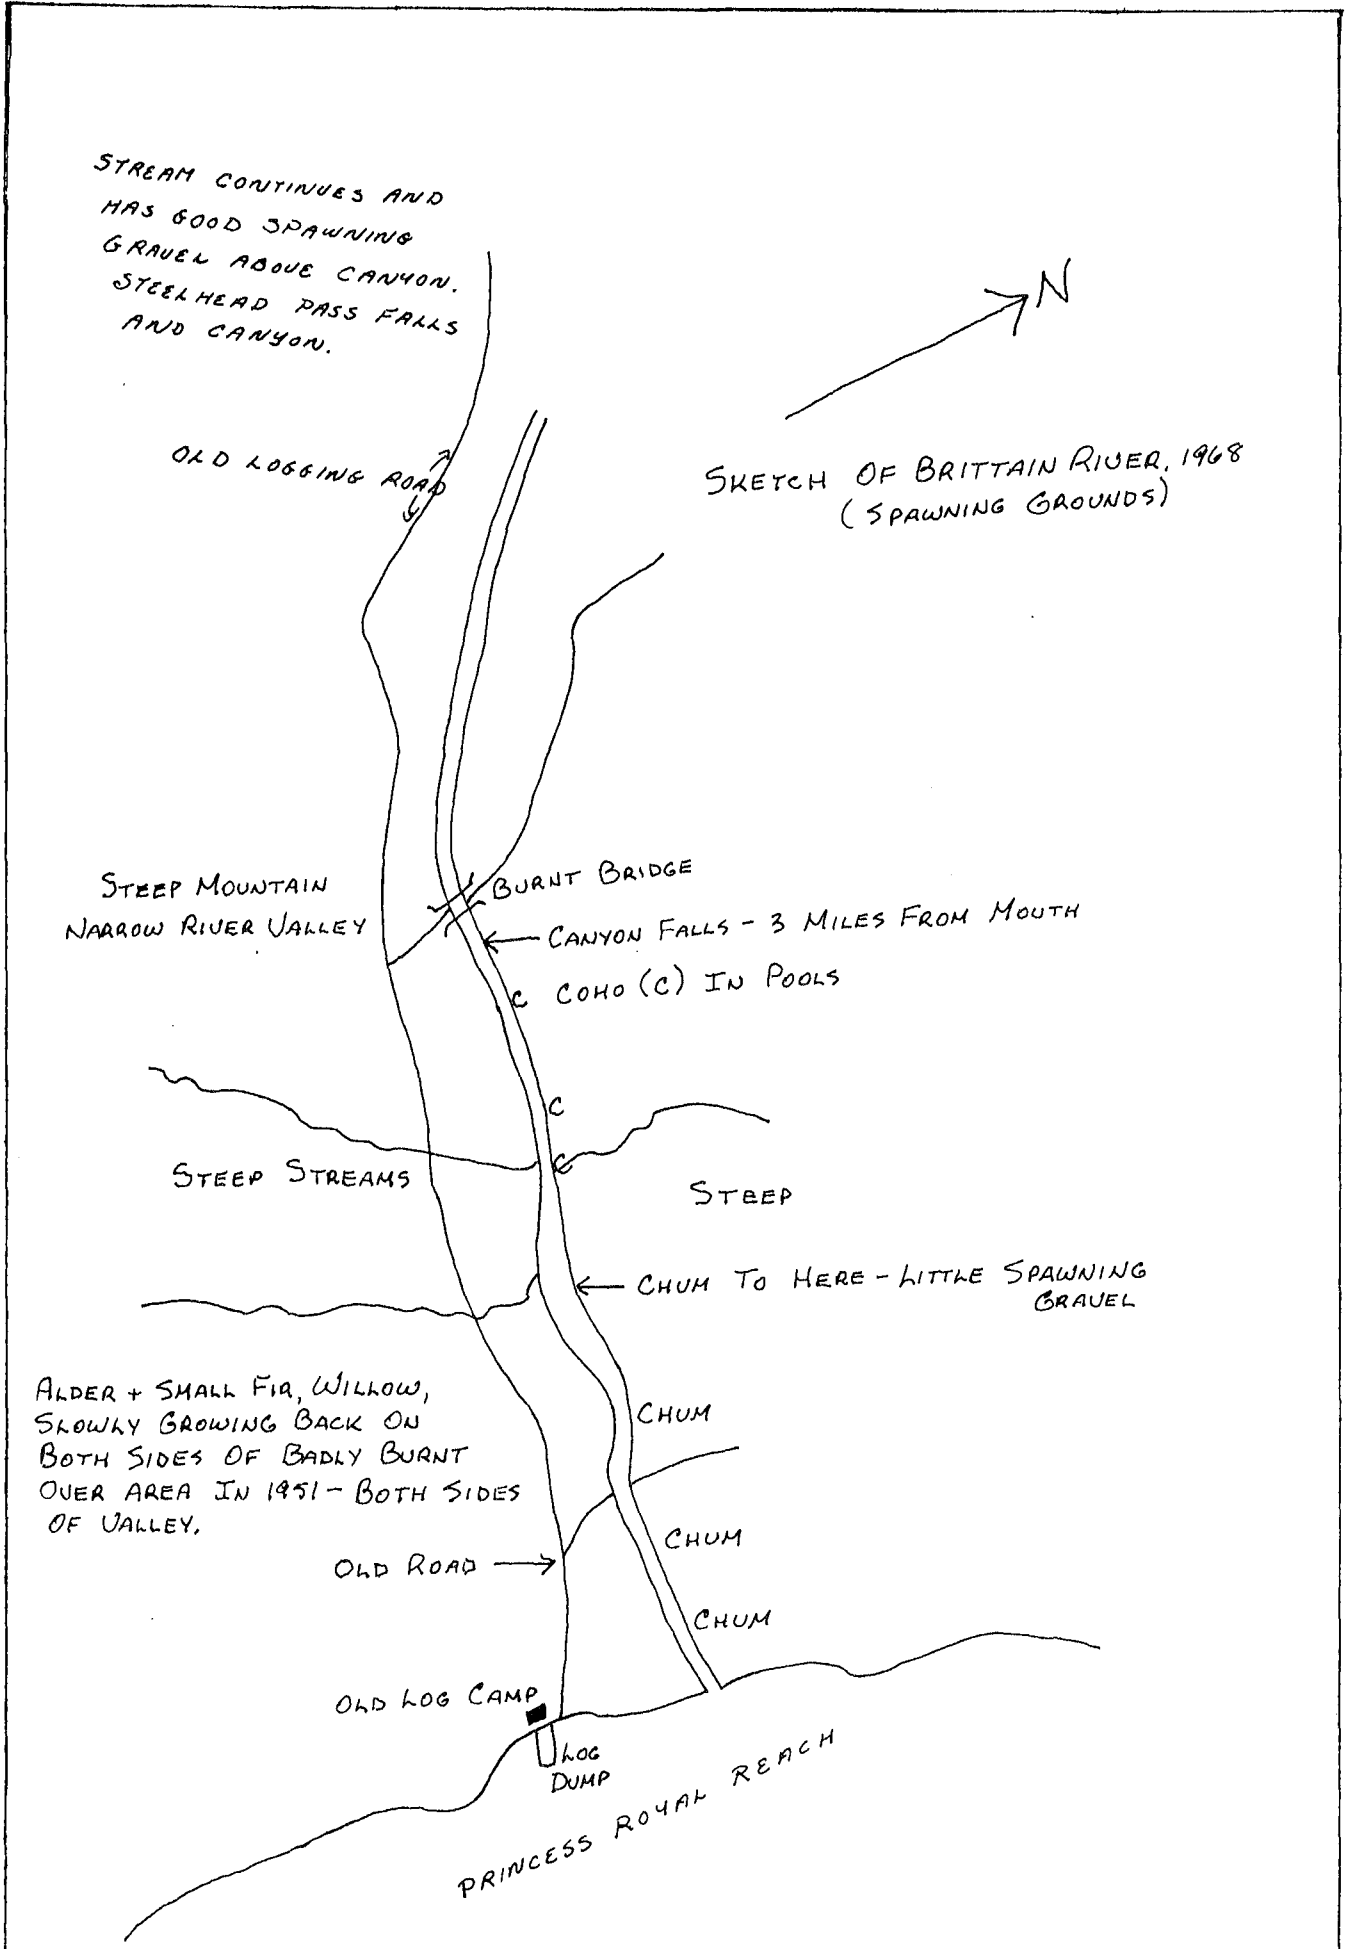 STREAM CONTINUES AND
HAS GOOD SPAWNING
GRAVEL ABOVE CANYON.
STEELHEAD PASS FALLS
AND CANYON.
N
OLD LOGGING ROAD
SKETCH OF BRITTAIN RIVER, 1968
(SPAWNING GROUNDS)
BURNT BRIDGE
STEEP MOUNTAIN
NARROW RIVER VALLEY
CANYON FALLS - 3 MILES FROM MOUTH
C COHO (C) IN POOLS
C
C
STEEP STREAMS
STEEP
CHUM TO HERE - LITTLE SPAWNING
GRAVEL
ALDER + SMALL FIR, WILLOW,
SLOWLY GROWING BACK ON
BOTH SIDES OF BADLY BURNT
OVER AREA IN 1951 - BOTH SIDES
OF VALLEY.
CHUM
CHUM
OLD ROAD
CHUM
OLD LOG CAMP
LOG
DUMP
PRINCESS ROYAL REACH